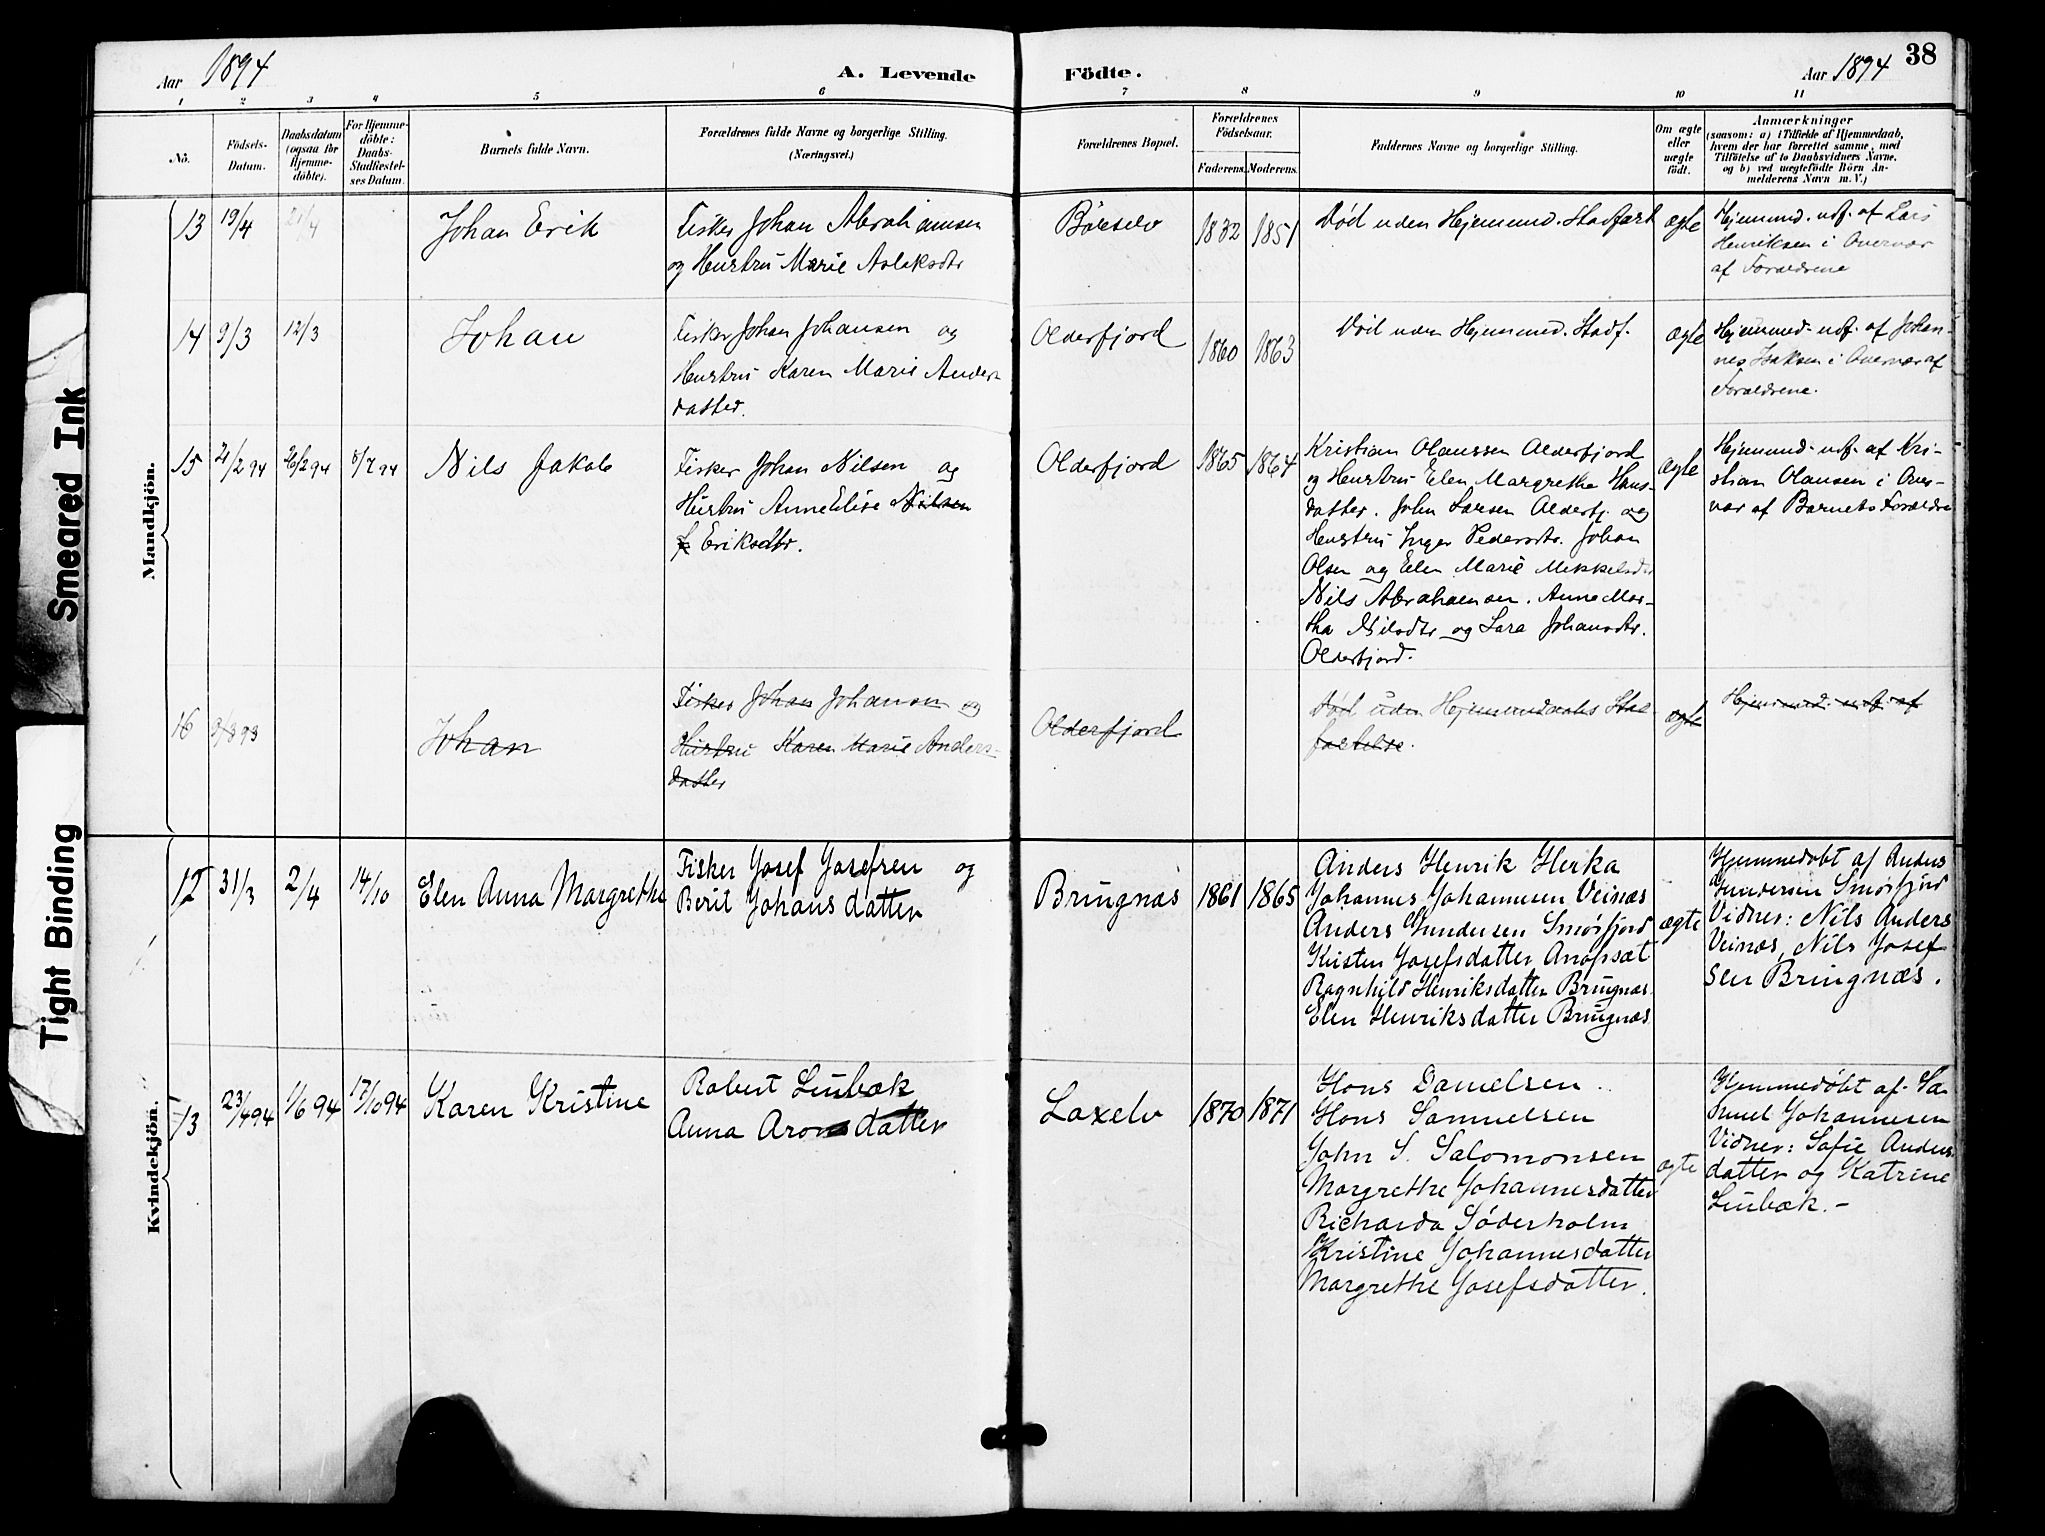 Aar 1894
A. Levende Födte.
Aar 1894
38
1 2 3 4 5 6 7 8 9 10 11
No.
Födsels-
Datum.
Daabsdatum
(ogsaa for
Hjemme-
döbte).
For Hjemme-
döbte:
Daabs-
Stadfestel-
ses Datum.
Barnets fulde Navn.
Forældrenes fulde Navne og borgerlige Stilling.
(Næringsvei.)
Forældrenes Bopæl.
Forældrenes
Födselsaar.
Faderens. Moderens.
Faddernes Navne og borgerlige Stilling.
Om ægte
eller
uægte
født.
Anmærkninger
(saasom: a) i Tilfælde af Hjemmedaab,
hvem der har forrettet samme, med
Tilföielse af to Daabsvidners Navne.
og b) ved uægtefödte Börn An-
melderens Navn m. V.)
Mandkjön.
13 19/4 21/4
Johan Erik
Fisker Johan Abrahamsen
og Hustru Marie Aslaksdtr
Børselv
1832 1851
Død uden Hjemmed. Stadfæst
ægte
Hjemmed. udf. af Lars
Henriksen i Overvær
af Forældrene
14 9/3 12/3
Johan
Fisker Johan Johansen og
Hustru Karen Marie Anders
datter.
Olderfjord
1860 1863
Død uden Hjemmed. Stadf.
ægte
Hjemmed. udf. af Johan-
nes Isaksen i Overvær af
Forældrene.
15 21/2 94 26/2 94 8/7 94
Nils Jakob
Fisker Johan Nilsen og
Hustru Anne Elise Nilsen
f Eriksdtr.
Olderfjord
1865 1864
Kristian Olaussen Olderfjord
og Hustru Elen Margrethe Hans-
datter. John Larsen Olderfj. og
Hustru Inger Pedersdtr. Johan
Olsen og Elen Marie Mikkelsdtr
Nils Abrahamsen. Anne Mar-
tha Nilsdtr og Sara Johansdtr.
Olderfjord.
ægte
Hjemmed. udf. af Kri-
stian Olausen i Over-
vær af Barnets Forældre
16 9/3 93
Johan
Fisker Johan Johansen og
Hustru Karen Marie Anders-
datter
Olderfjord
Død uden Hjemmedaabs Stad-
fæstelse.
ægte
Hjemmed. udf. af
Kvindekjön.
12 31/3 2/4 14/10
Elen Anna Margrethe
Fisker Josef Josefsen og
Berit Johansdatter
Bringnæs
1861 1865
Anders Henrik Herka
Johannes Johannesen Veinæs
Anders Gundersen Smørfjord
Kristen Josefsdatter
Ragnhild Henriksdatter Bringnæs
Elen Henriksdatter Bringnæs
ægte
Hjemmedøbt af Anders
Gundersen Smørfjord
Vidner: Nils Anders
Veinæs, Nils Josef
sen Bringnæs.
13 23/4 94 1/6 94 17/10 94
Karen Kristine
Robert Liubæk
Anna Aronsdatter
Laxelv
1870 1871
Hans Danielsen
Hans Samuelsen
John S. Salomonsen
Margrethe Johannesdatter
Richarda Søderholm
Kristine Johannesdatter
Margrethe Josefsdatter.
ægte
Hjemmedøbt af Sa
muel Johannesen
Vidner: Sofie Anders
datter og Katrine
Liubæk.-
Smeared Ink
Tight Binding